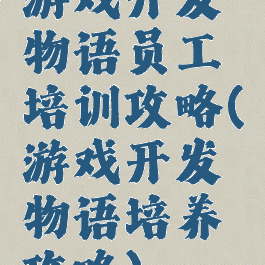 游戏开发
物语员工
培训攻略(
游戏开发
物语培养
攻略)